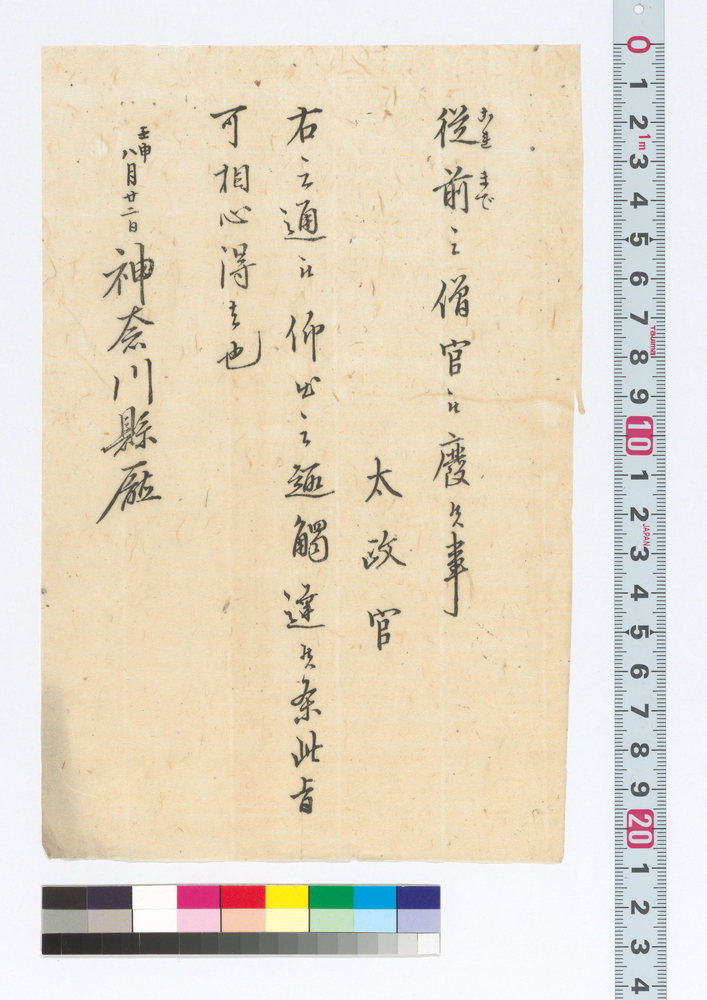 これ まで
從前之僧官被廢候事
太政官
右之通被仰出之趣觸達候条此旨
可相心得者也
壬申
八月廿二日
神奈川縣廳
0
1
2
1m
3
4
5
6
7
Tajima
8
9
10
1
2
JAPAN
3
4
5
6
7
8
9
20
1
2
3
4